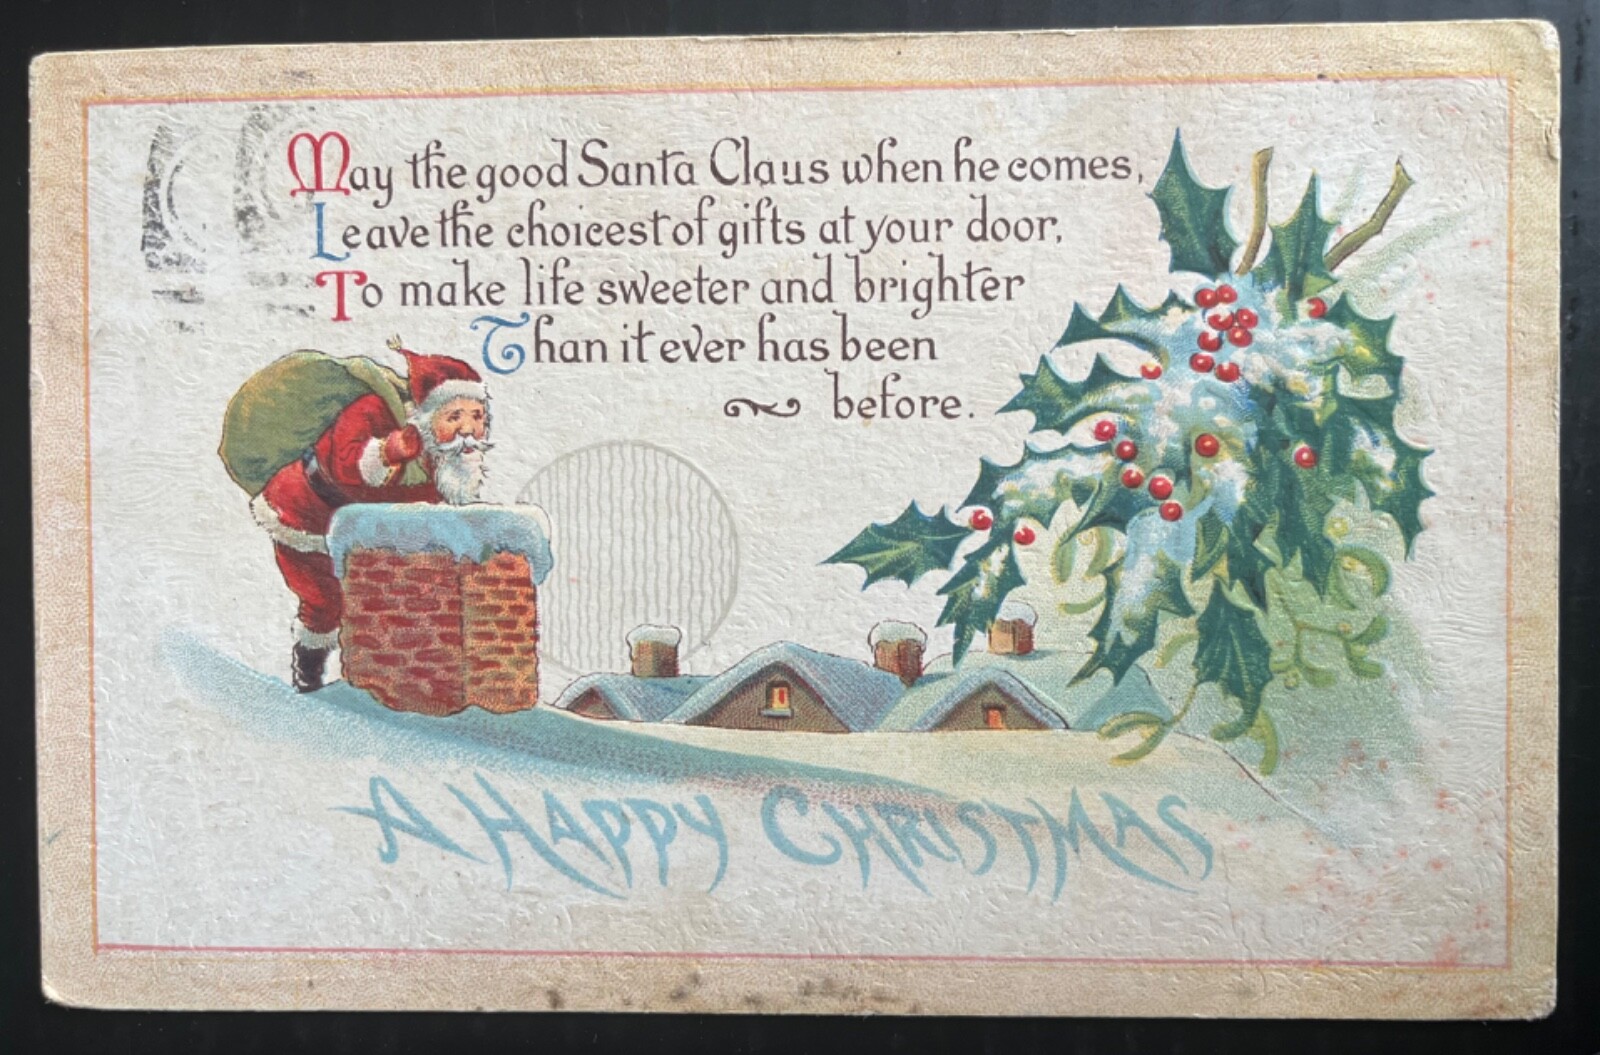 May the good Santa Claus when he comes,
Leave the choicest of gifts at your door,
To make life sweeter and brighter
Than it ever has been
before.
A HAPPY CHRISTMAS